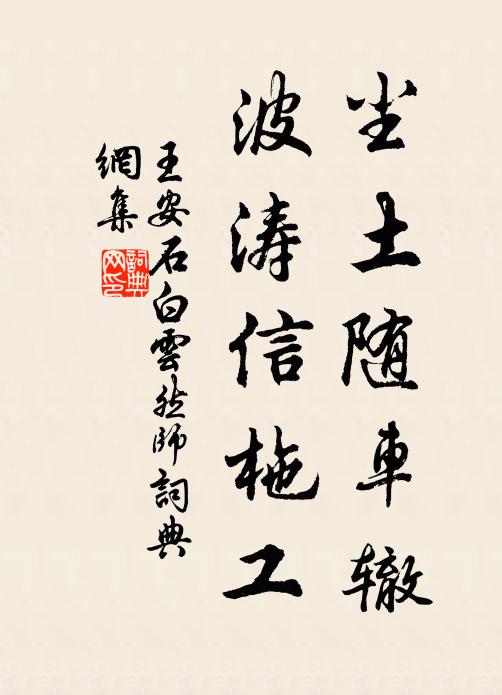 尘土随車辙
波涛信柂工
王安石白雲然師詞典
網集
詞典
网印